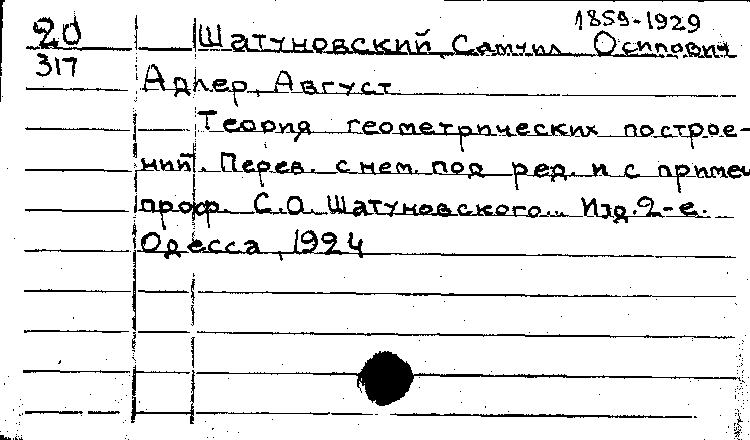 1859-1929
20 Шатуновский, Самуил Осипович
317 Адлер, Август
Теория геометрических построе-
ний. Перев. с нем. под ред. и с примеч
проф. С.О. Шатуновского... Изд. 2-е.
Одесса, 1924